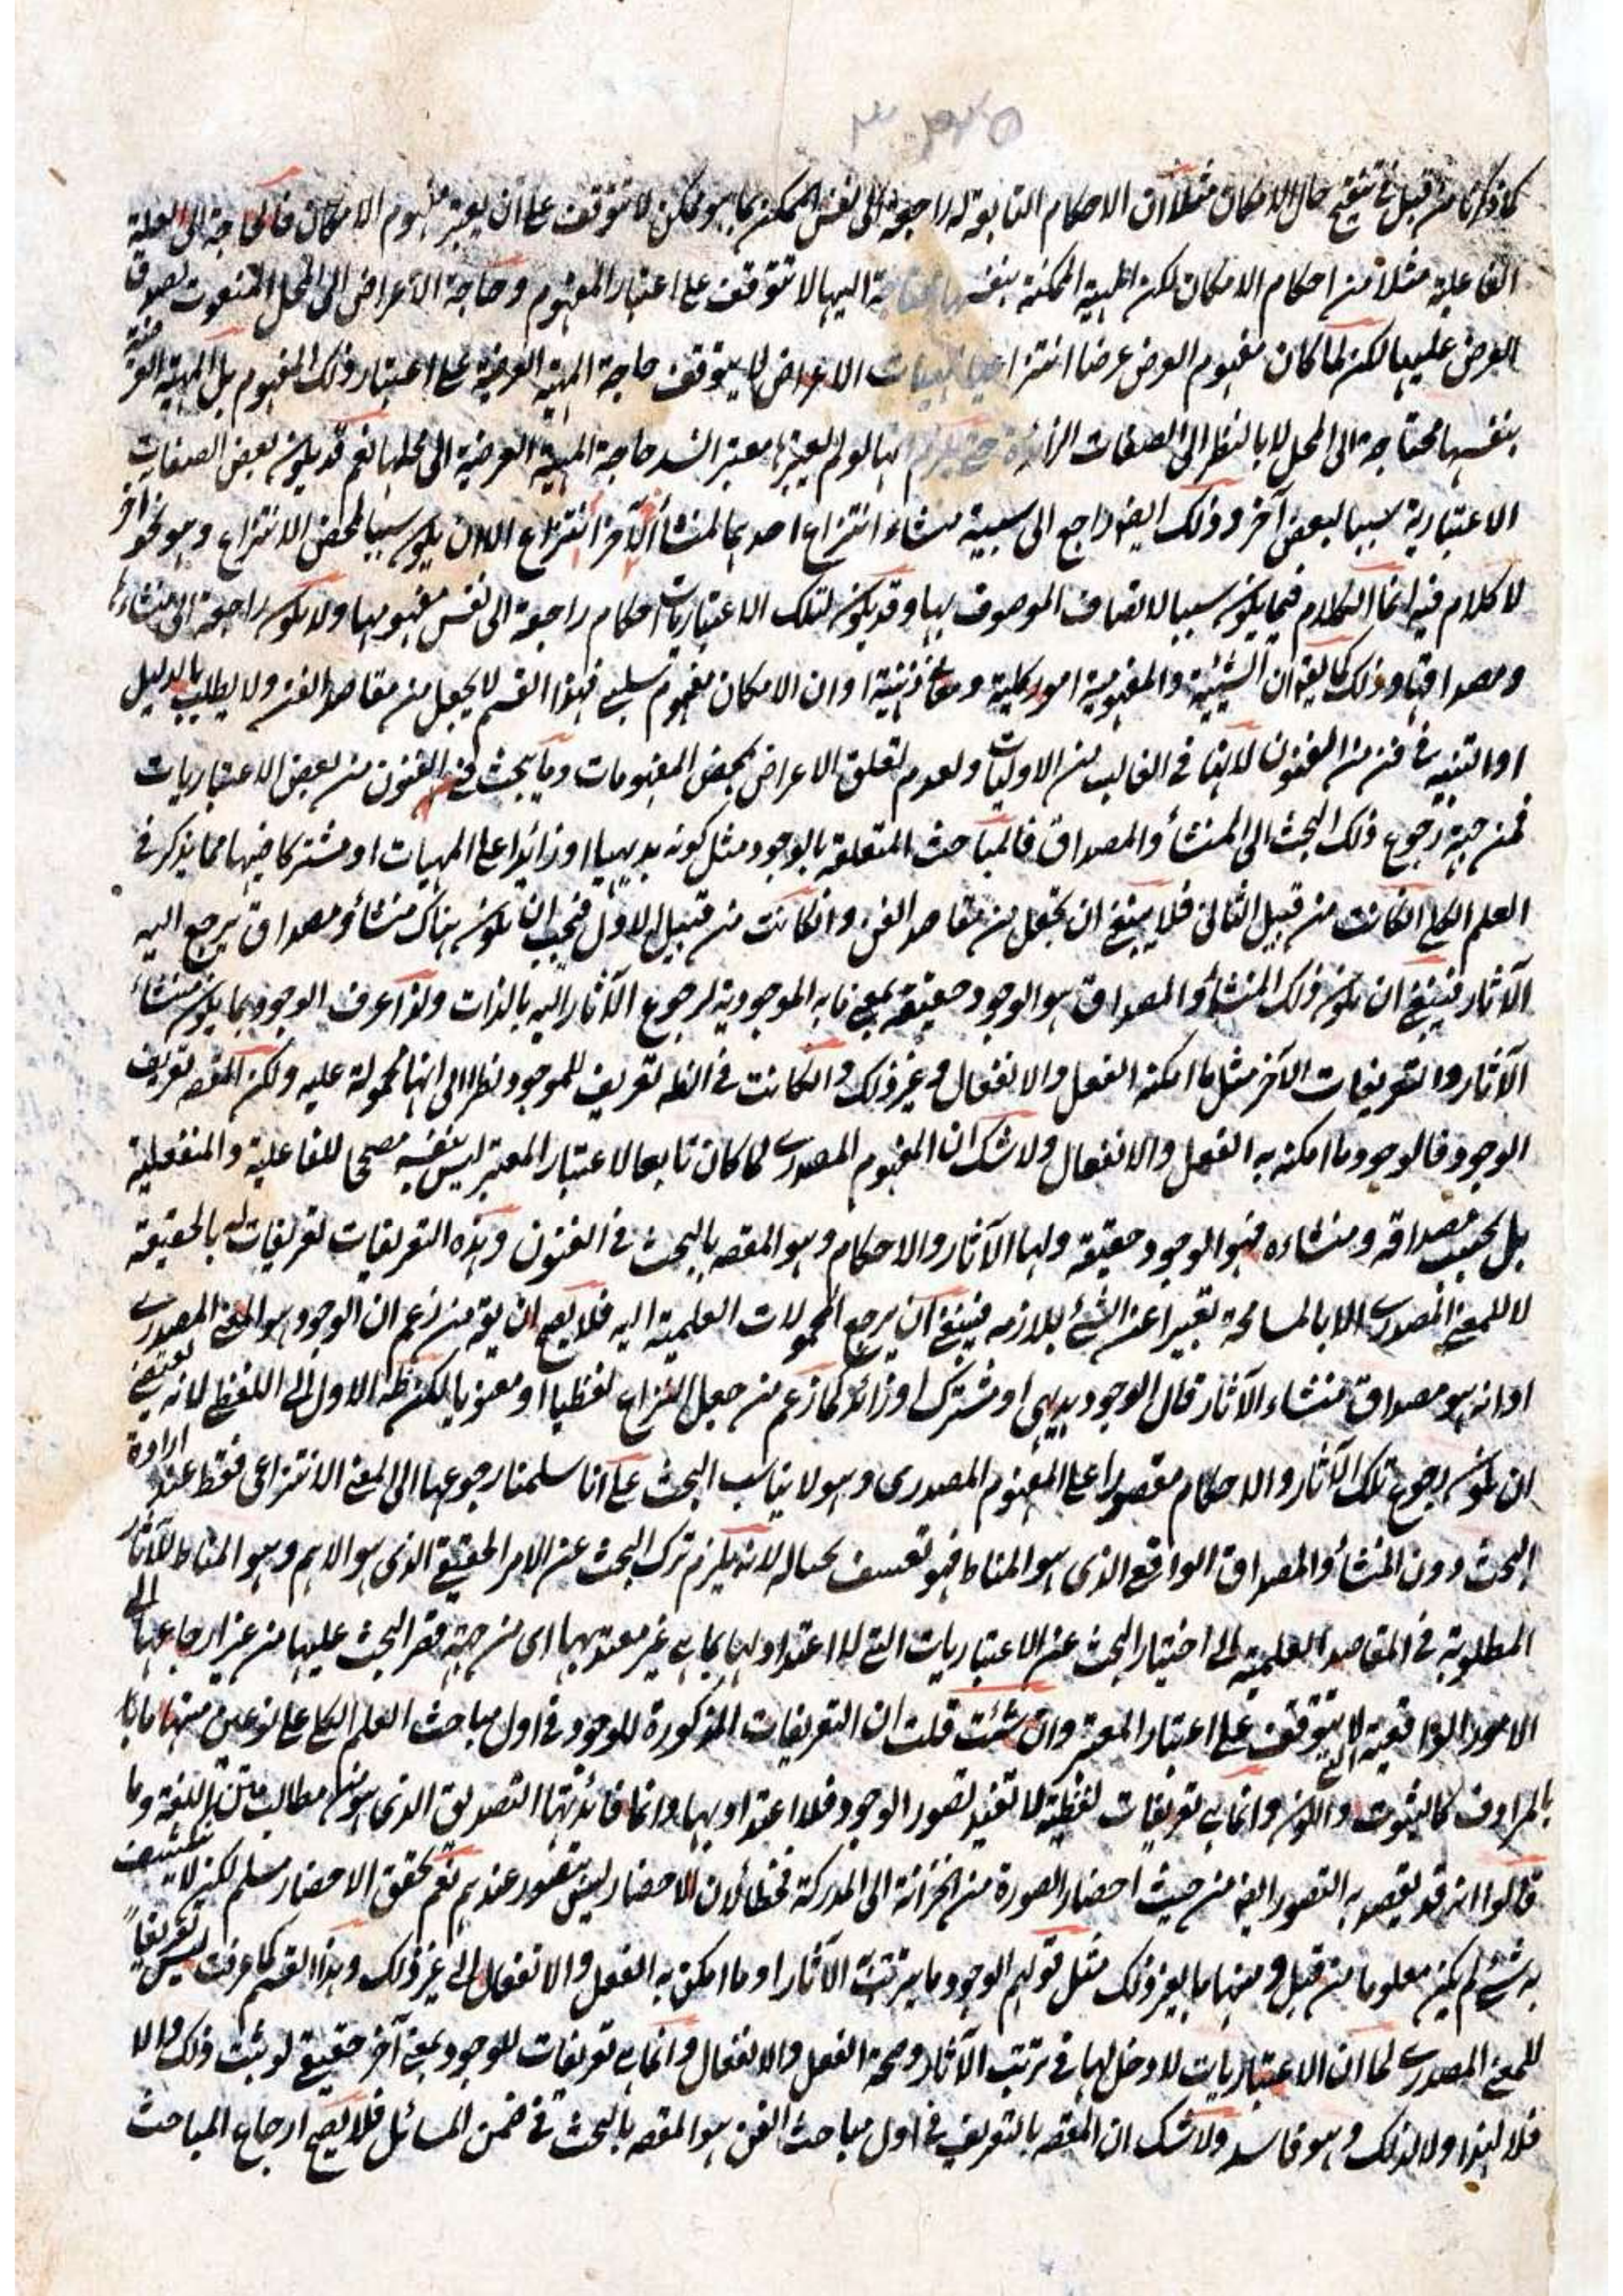 كما ذكرنا من قبل في تنقيح حال الامكان مثلا ان الاحكام التابعة له راجعة الى نفس الممكن بما هو ممكن لا تتوقف على ان يعتبر مفهوم الامكان فالحاجة الى العلة
الفاعلية مثلا من احكام الامكان لكن المهية الممكنة بنفسها محتاجة اليها لا تتوقف على اعتبار المفهوم وحاجة الاعراض الى المحل المنعوت بصدق
العرض عليها لكن لما كان مفهوم العرض عرضا انتزاعيا لمهيات الاعراض لا يتوقف حاجة المهية العرضية على اعتبار ذلك المفهوم بل المهية العرضية
بنفسها محتاجة الى المحل لا بالنظر الى الصفات الزائدة حتى يلزم انها لو لم يعتبرها معتبر انسد حاجة المهية العرضية الى محلها نعم قد يكون بعض الصفات
الاعتبارية سببا لبعض آخر وذلك ايضا راجع الى سببية منشاء انتزاع احدهما لمنشأ انتزاع الآخر الا ان يكون سببا لمحض الانتزاع وهو نحو آخر
لا كلام فيه انما الكلام فيما يكون سببا لاتصاف الموصوف بها وقد يكون لتلك الاعتباريات احكام راجعة الى نفس مفهومها ولا يكون راجعة الى منشاءها
ومصداقها وذلك كما يقه ان الشيئية والمفهومية امور كلية ومعان ذهنية او ان الامكان مفهوم سلبي فهذا القسم لا يجعل من مقاصد الفن ولا يطلب بالدليل
او التنبيه في فن من الفنون لانها في الغالب من الاوليات ولعدم تعلق الاغراض بمحض المفهومات وما يبحث في الفنون من بعض الاعتباريات
فمن جهة رجوع ذلك البحث الى المنشأ والمصداق فالمباحث المتعلقة بالوجود مثل كونه بديهيا او زائدا على المهيات او مشتركا فيها مما يذكر في
العلم الكلي انكانت من قبيل الثاني فلا ينبغي ان يجعل من مقاصد الفن وانكانت من قبيل الاول فيجب ان يكون هناك منشأ ومصداق يرجع اليه
الآثار فينبغي ان يكون ذلك المنشأ والمصداق هو الوجود حقيقة بمعنى ما به الموجودية لرجوع الآثار اليه بالذات ولذا عرف الوجود بما يكون منشاء
الآثار والتعريفات الآخر مثل ما امكنه الفعل والانفعال وغير ذلك وانكانت في الظه تعريف للموجود نظرا الى انها محمولة عليه ولكن المقصه تعريف
الوجود فالوجود ما امكنه به الفعل والانفعال ولا شك ان المفهوم المصدري لما كان تابعا لاعتبار المعتبر ليس بنفسه مصححا للفاعلية والمنفعلية
بل بحسب مصداقه ومنشاءه فهو الوجود حقيقة ولها الآثار والاحكام وهو المقصه بالبحث في الفنون وهذه التعريفات تعريفات له بالحقيقة
لا للمعنى المصدري الا بالمسامحة تعبيرا عن الشئ بلازمه فينبغي ان يرجع المحمولات العلمية اليه فلا يصح ان يقه من زعم ان الوجود هو المعنى المصدري
او انه هو مصداق منشاء الآثار قال الوجود بديهي او مشترك او زائد كما زعم من جعل النزاع لفظيا او معنويا لكن نظر الاول الى اللفظ لانه يقتضي
ان يكون رجوع تلك الآثار والاحكام مقصورا على المفهوم المصدري وهو لا يناسب البحث على انا سلمنا رجوعها الى المعنى الانتزاعي فقط عند ارادة
البحث دون المنشأ والمصداق الواقع الذي هو المناط فهو تعسف بحياله لانه يلزم ترك البحث عن الامر الحقيقي الذي هو الاهم وهو المناط للآثار
المطلوبة في المقاصد العلمية الى اختيار البحث عن الاعتباريات التي لا اعتداد لها بما هي غير معتد بها اي من جهة قصر البحث عليها من غير ارجاعها الى
الامور الواقعية التي لا تتوقف على اعتبار المعتبر وان شئت قلت ان التعريفات المذكورة للوجود في اول مباحث العلم الكلي على نوعين منها ما
بالمرادف كالثبوت والكون وانما هي تعريفات لفظية لا تفيد تصور الوجود فلا اعتداد بها وانما فائدتها التصديق الذي هو من مطالب متن اللغة وما
قالوا انه قد يقصد به التصور ايضا من حيث احضار الصورة من الخزانة الى المدركة فخطأ لان الاحضار ليس بتصور عندهم نعم تحقق الاحضار مسلم لكن لا ينكشف
به شئ لم يكن معلوما من قبل ومنها ما بغير ذلك مثل قولهم الوجود ما يترتب الآثار او ما امكن به الفعل والانفعال الى غير ذلك وهذا القسم كما عرفت ليس تعريفا
للمعنى المصدري لما ان الاعتباريات لا دخل لها في ترتب الآثار وصحة الفعل والانفعال وانما هي تعريفات للوجود بمعنى آخر حقيقي لو ثبت ذلك والا
فلا لهذا ولا لذلك وهو فاسد ولا شك ان المقصه بالتعريف في اول مباحث الفن هو المقصه بالبحث في ضمن المسائل فلا يصح ارجاع المباحث